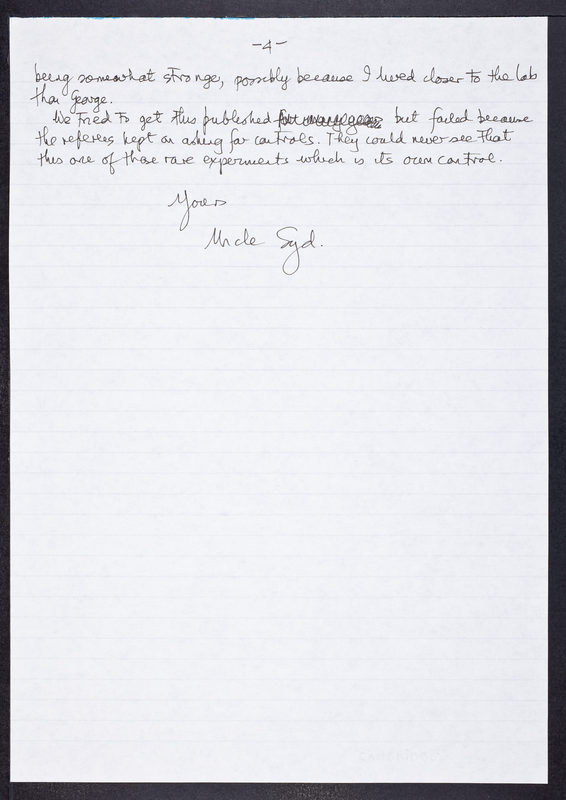 -4-
being somewhat strange, possibly because I lived closer to the lab
than George.
We tried to get this published for many years but failed because
the referees kept on asking for controls. They could never see that
this one of those rare experiments which is its own control.
Yours
Uncle Syd.